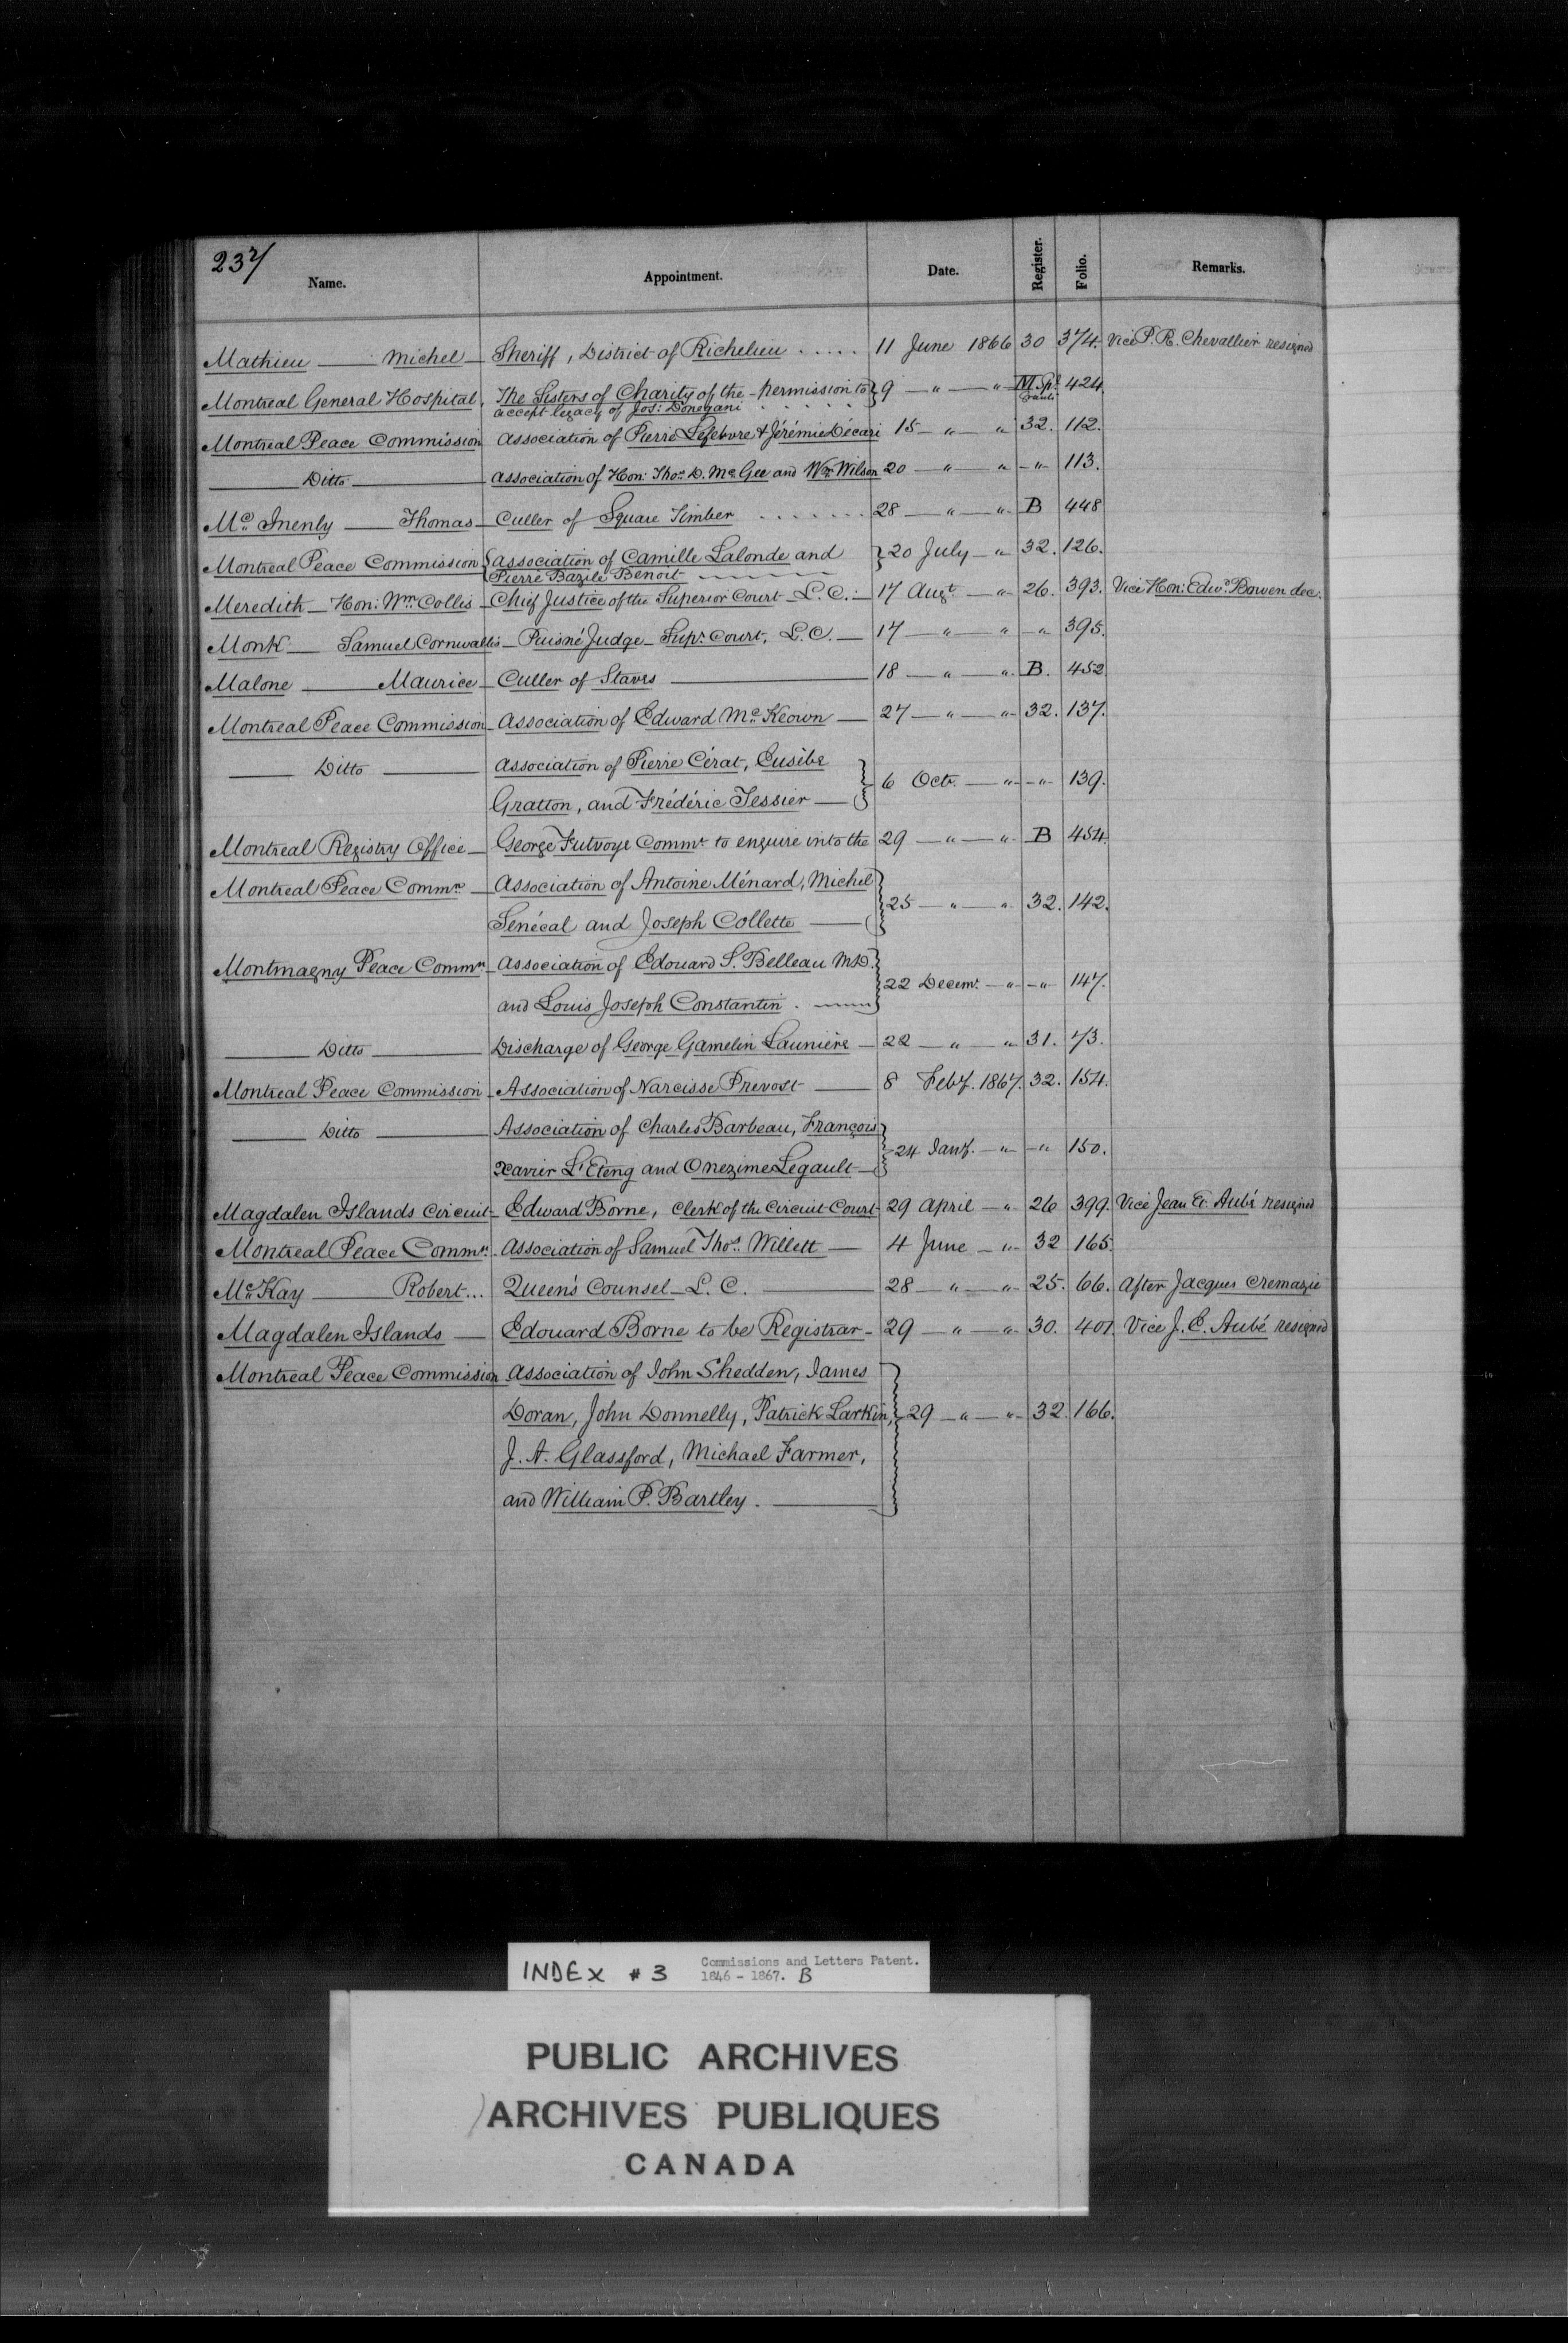 237
Name. Appointment. Date. Register. Folio. Remarks.
Mathieu — Michel — Sheriff, District of Richelieu ..... 11 June 1866 30 374. Vice P. R. Chevallier resigned
Montreal General Hospital, The Sisters of Charity of the - permission to } 9 — " — " — M. Spl. 424.
accept legacy of Jos: Donegani . . . . . .
Montreal Peace Commission Association of Pierre Lefebvre & Jérémie Décari 15 — " — " 32. 112.
Ditto — Association of Hon: Thos. D. McGee and Wm. Wilson 20 — " — " — " — 113.
McInenly — Thomas — Culler of Square Timber . . . . . . . 28 — " — " B 448
Montreal Peace Commission { Association of Camille Lalonde and } 20 July — " 32. 126.
Pierre Bazile Benoit
Meredith — Hon: Wm. Collis — Chief Justice of the Superior Court — L.C. — 17 Augt. — " 26. 393. Vice Hon: Edwd. Bowen dec.
Monk — Samuel Cornwallis — Puisné Judge — Supr. Court, L.C. — 17 — " — " — " 395.
Malone — Maurice — Culler of Staves — 18 — " — " B. 452
Montreal Peace Commission — Association of Edward McKeown — 27 — " — " 32. 137.
Ditto — Association of Pierre Cérat, Eusèbe
Gratton, and Frédéric Tessier — } 6 Octr. — " — " — 139.
Montreal Registry Office — George Futvoye Commr. to enquire into the 29 — " — " B 454.
Montreal Peace Commn. — Association of Antoine Ménard, Michel
Senécal and Joseph Collette — } 25 — " — " 32. 142.
Montmagny Peace Commn. — Association of Edouard S. Belleau M.D.
and Louis Joseph Constantin . — } 22 Decemr. — " — " — 147.
Ditto — Discharge of George Gamelin Launière — 22 — " — " 31. 73.
Montreal Peace Commission — Association of Narcisse Prevost — 8 Feby. 1867. 32. 154.
Ditto — Association of Charles Barbeau, François
Xavier L'Eteng and Onezime Legault — } 24 Jany. — " — " 150.
Magdalen Islands Circuit — Edward Borne, Clerk of the Circuit Court — 29 April — " 26 399. Vice Jean E. Aubé resigned
Montreal Peace Commn. — Association of Samuel Thos. Willett — 4 June — " 32 165.
McKay — Robert... Queen's Counsel — L.C. — 28 — " — " 25. 66. After Jacques Cremazie
Magdalen Islands — Edouard Borne to be Registrar — 29 — " — " 30. 401. Vice J. E. Aubé resigned
Montreal Peace Commission Association of John Shedden, James
Doran, John Donnelly, Patrick Larkin, } 29 — " — " 32. 166.
J. A. Glassford, Michael Farmer,
and William P. Bartley. —
INDEX # 3 Commissions and Letters Patent.
1846 - 1867. B
PUBLIC ARCHIVES
ARCHIVES PUBLIQUES
CANADA